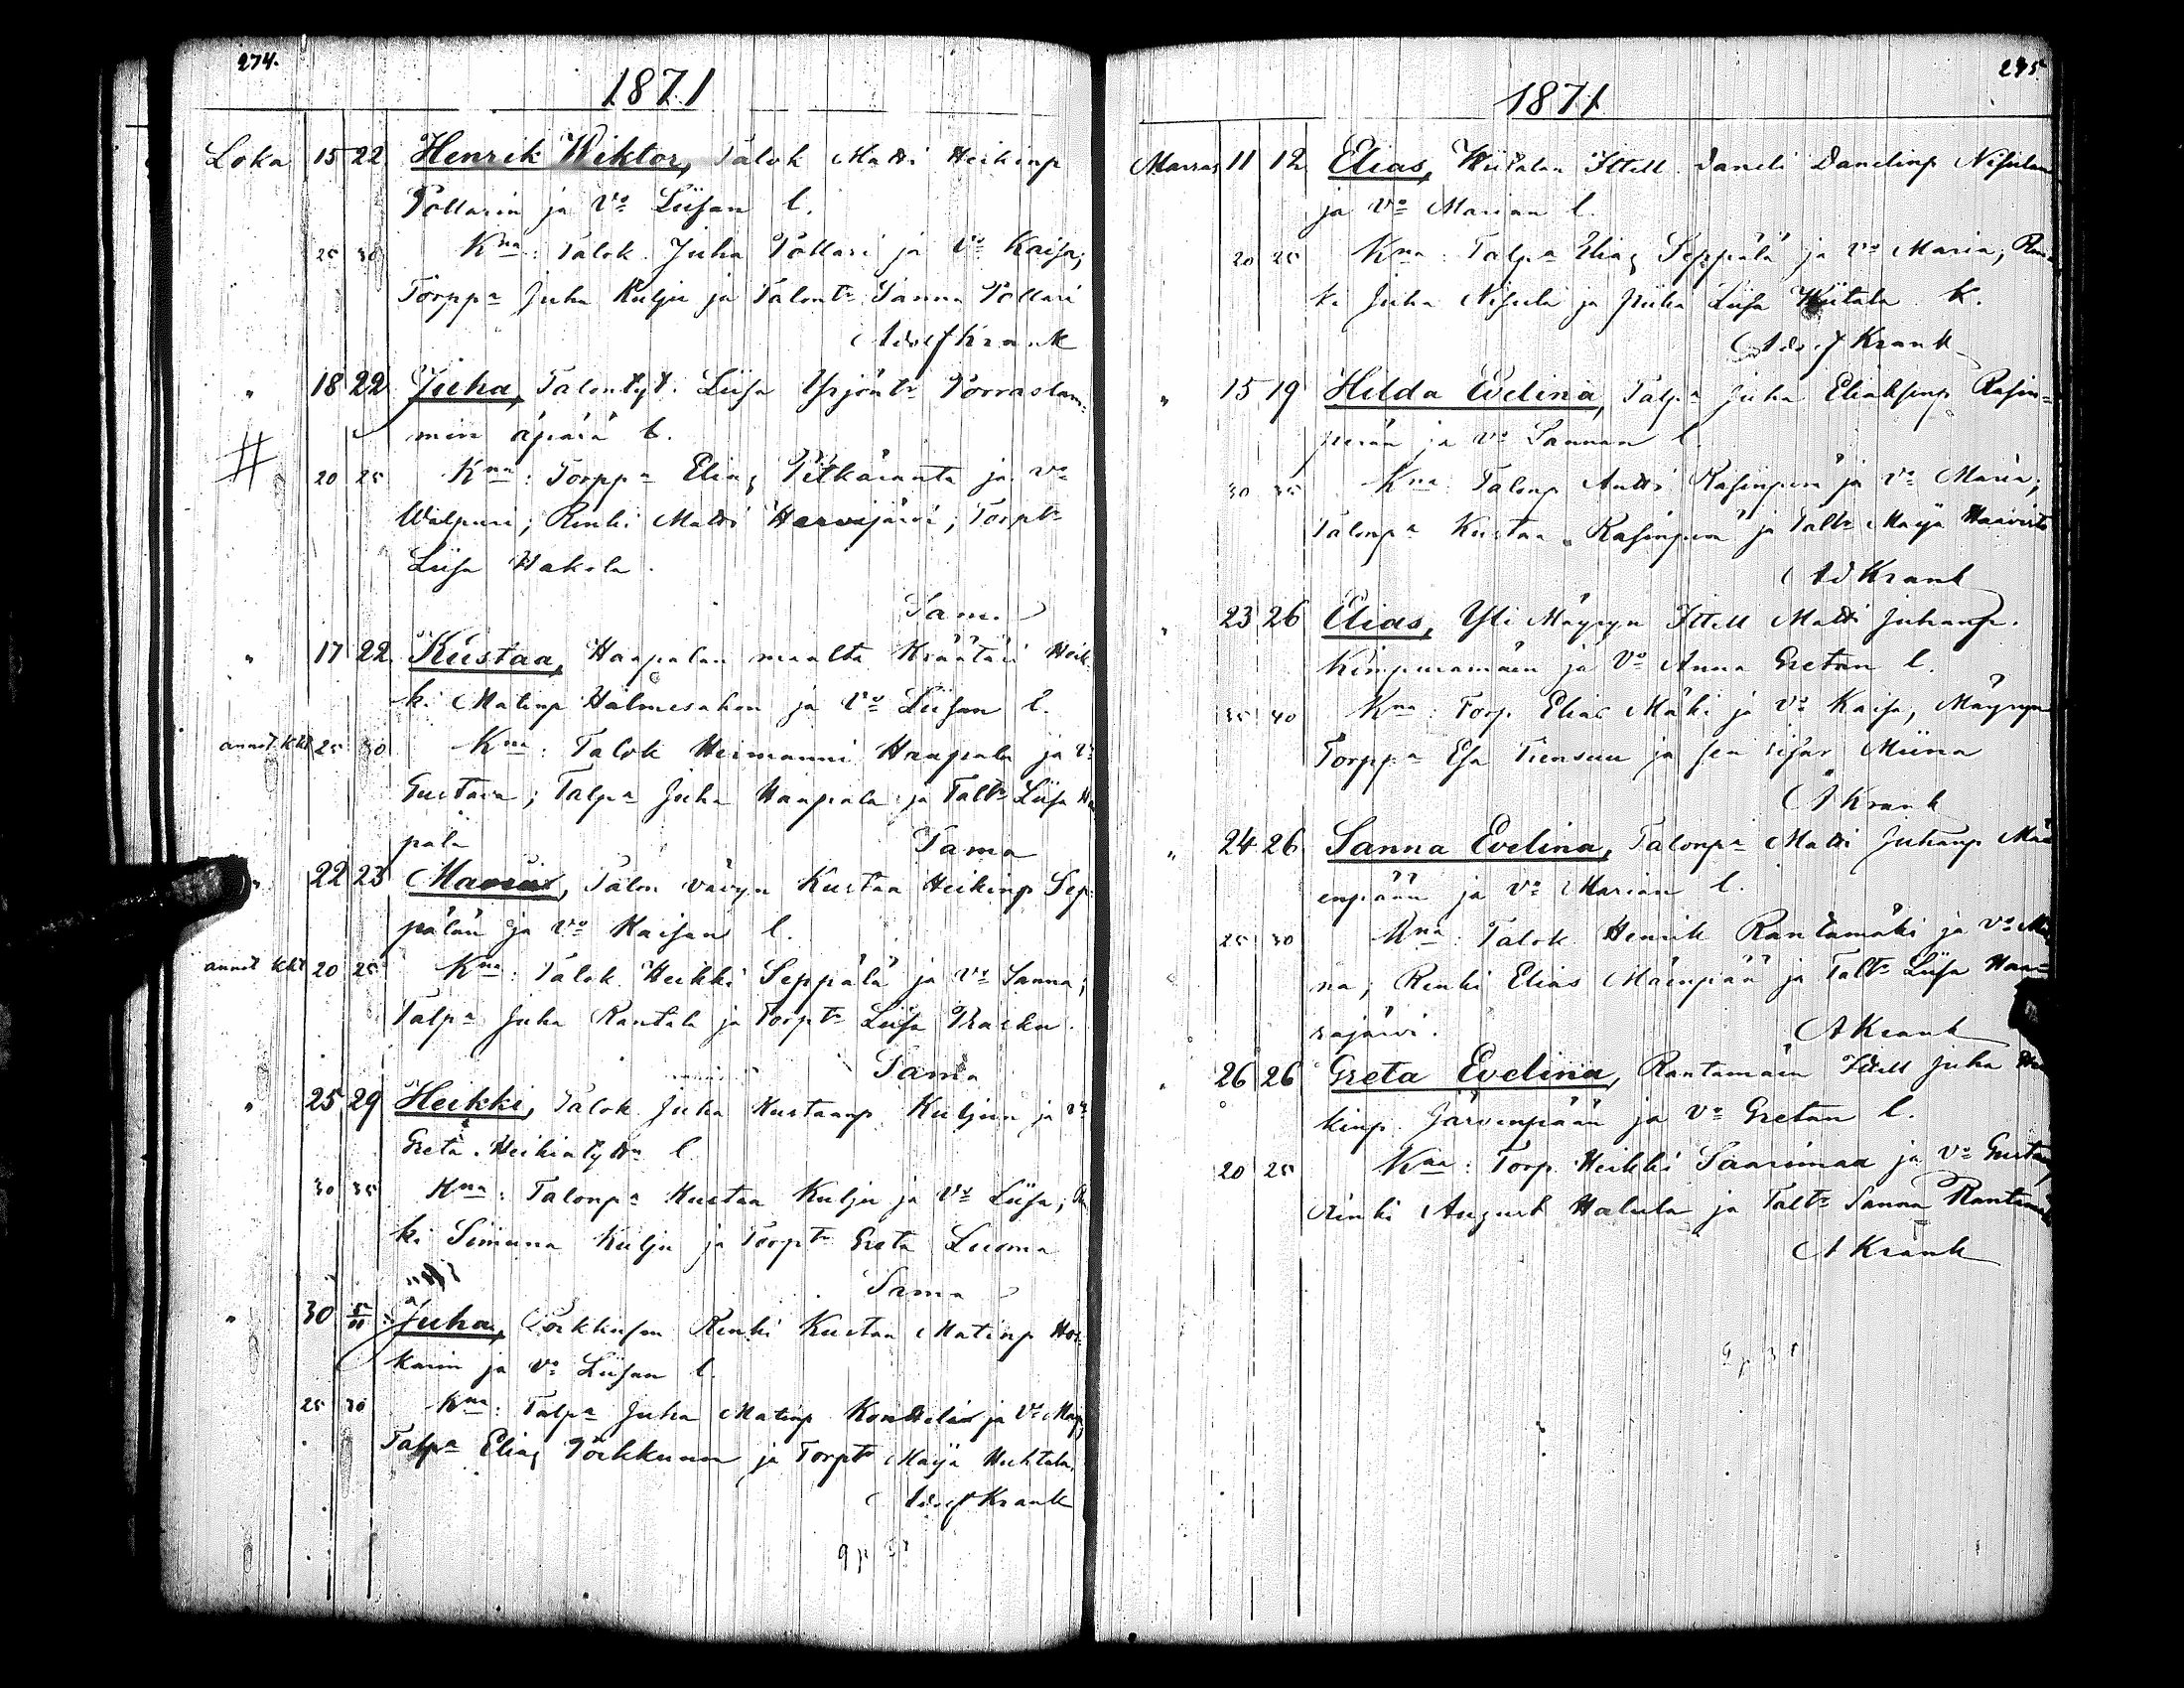 274.
1871
Loka 15 22 Henrik Wiktor, Talok Matti Heikinp
Pollarin ja Vo Liisan l.
25 30 Kna: Talok. Juha Pollari ja Vo Kaisa;
Torppa Juha Kulju ja Talontr Sanna Pollari
Adolf Krank
" 18 22 Juha, Talontyt. Liisa Yrjöntr Porraslam-
min äpärä l.
# 20 25 Kna: Torppa Elias Pitkäranta ja Vo
Walpuri; Renki Matti Hervajärvi; Torptr
Liisa Hakola.
Sama
" 17 22 Kustaa, Haapalan maalta Kräätäri Heik-
ki Matinp Halmesahon ja Vo Liisan l.
annet kkt 25 30 Kna: Talok Heimanni Haapala ja Vo
Gustava; Talpa Juha Haapala ja Taltr Liisa Ha
pala Sama
" 22 23 Maria, Talon vävyn Kustaa Heikinp Sep-
pälän ja Vo Kaisan l.
annet kkt 20 25 Kna: Talok Heikki Seppälä ja Vo Sanna;
Talpa Juha Rantala ja Torptr Liisa
Sama
" 25 29 Heikki, Talok Juha Kustaanp Kuljun ja Vo
Greta Heikintytön l.
30 35 Kna: Talonpa Kustaa Kulju ja Vo Liisa;
ki Simuna Kulju ja Torptr Greta Luoma
Sama
" 30 5/11 Juha, Pörkkusen Renki Kustaa Matinp
karin ja Vo Liisan l.
25 30 Kna: Talpa Juha Matinp ja Vo Maja,
Talpa Elias Pörkkunen ja Torptr Maija Huhtala.
Adolf Krank
9 p
275
1871
Marras 11 12 Elias, Wiitalan Ittell. Daneli Danelinp Nisulan
ja Vo Marian l.
20 25 Kna: Talpa Elias Seppälä ja Vo Maria; Ren
ki Juha Nisula ja Piika Liisa Wiitala k.
Adolf Krank
" 15 19 Hilda Evelina, Talpa Juha Eliaksenp Rasin-
perän ja Vo Sannan l.
30 35 Kna: Talonp Antti Rasinperä ja Vo Maria;
Talonpa Kustaa Rasinperä ja Taltr Maija Haavisto
Ad Krank
" 23 26 Elias, Yli Mäyryn Ittell Matti Juhanp.
Kimpuramäen ja Vo Anna Gretan l.
35 40 Kna: Torp. Elias Mäki ja Vo Kaisa, Mäyryn
Torppa Esa Tiensuu ja sen sisar Miina
A Krank
" 24 26 Sanna Evelina, Talonpa Matti Juhanp Mä
enpään ja Vo Marian l.
25 30 Kna: Talok. Henrik Rantamäki ja Vo
na; Renki Elias Mäenpää ja Taltr Liisa Haa-
rajärvi. A Krank
" 26 26 Greta Evelina, Rantamäen Ittell Juha Hei
kinp. Järvenpään ja Vo Gretan l.
20 25 Kna: Torp. Heikki Saarimaa ja Vo Gustava
Renki August Hakula ja Taltr Sanna Rantamä
A Krank